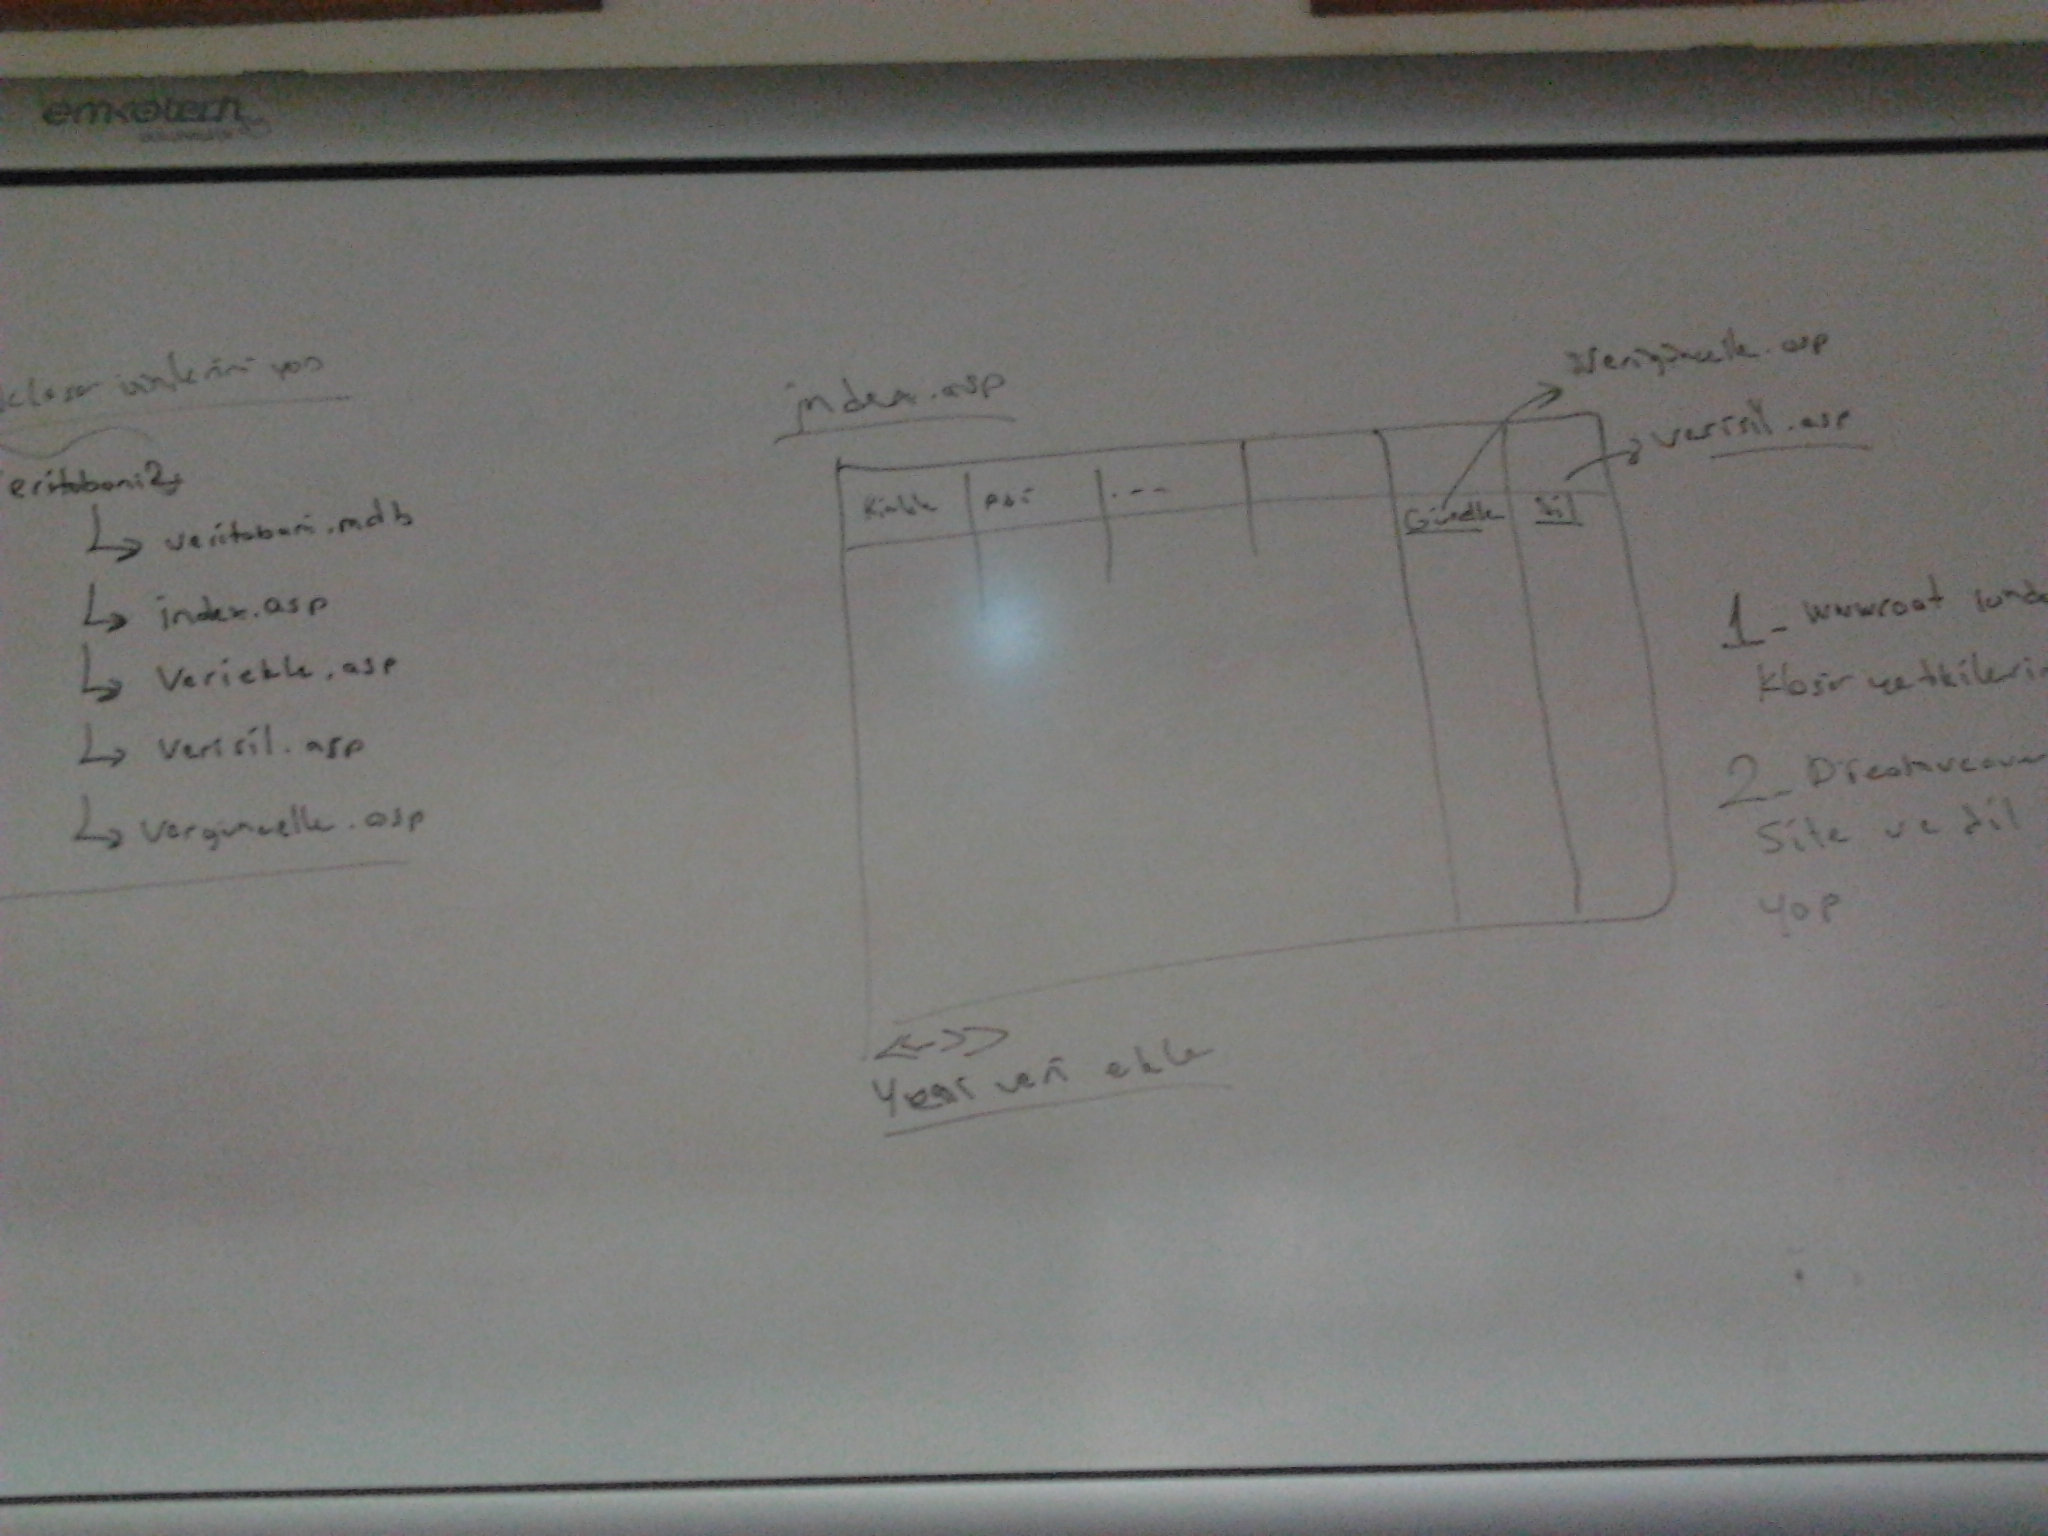 klasör izinlerini yap
eritabani2
veritabani.mdb
index.asp
Veriekle.asp
verisil.asp
verguncelle.asp
index.asp
Veriguncelle.asp
verisil.asp
Kimlik Adi ---
Güncelle Sil
Yeni veri ekle
1- wwwroot
Klasör yetkileri
2-
Site ve sil
yap